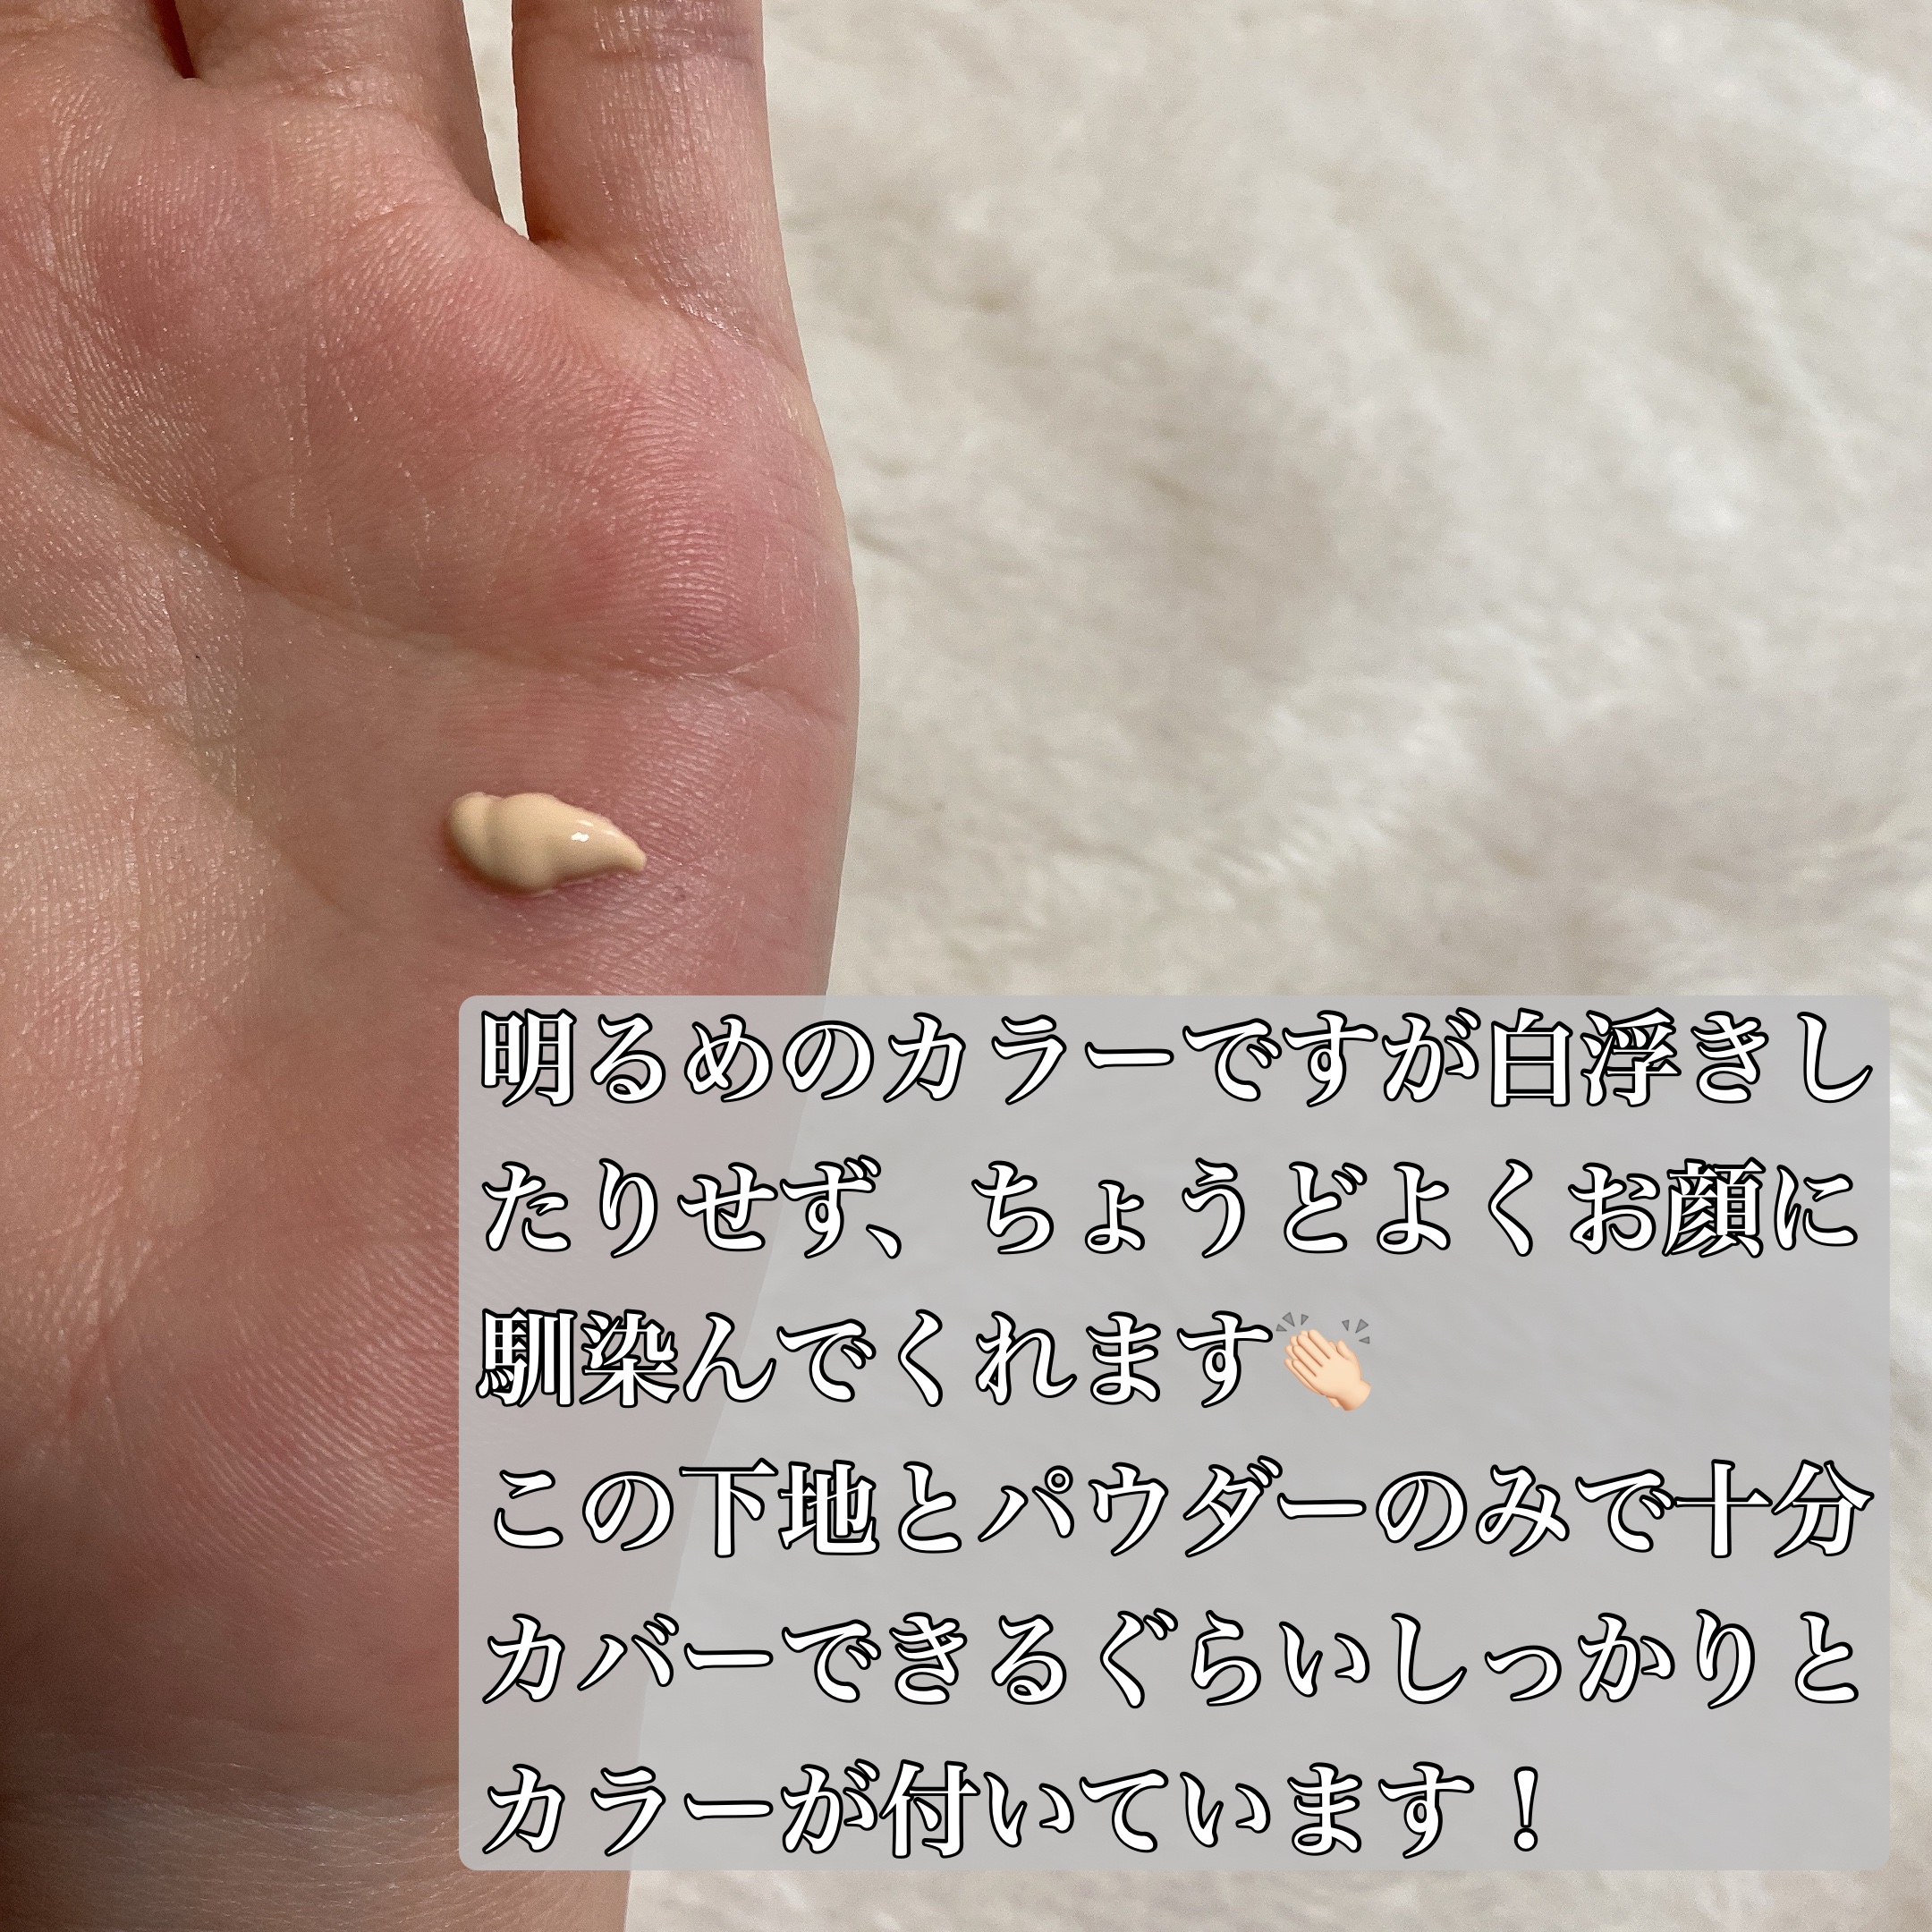 明るめのカラーですが白浮きし
たりせず、ちょうどよくお顔に
馴染んでくれます👏🏻
この下地とパウダーのみで十分
カバーできるぐらいしっかりと
カラーが付いています！